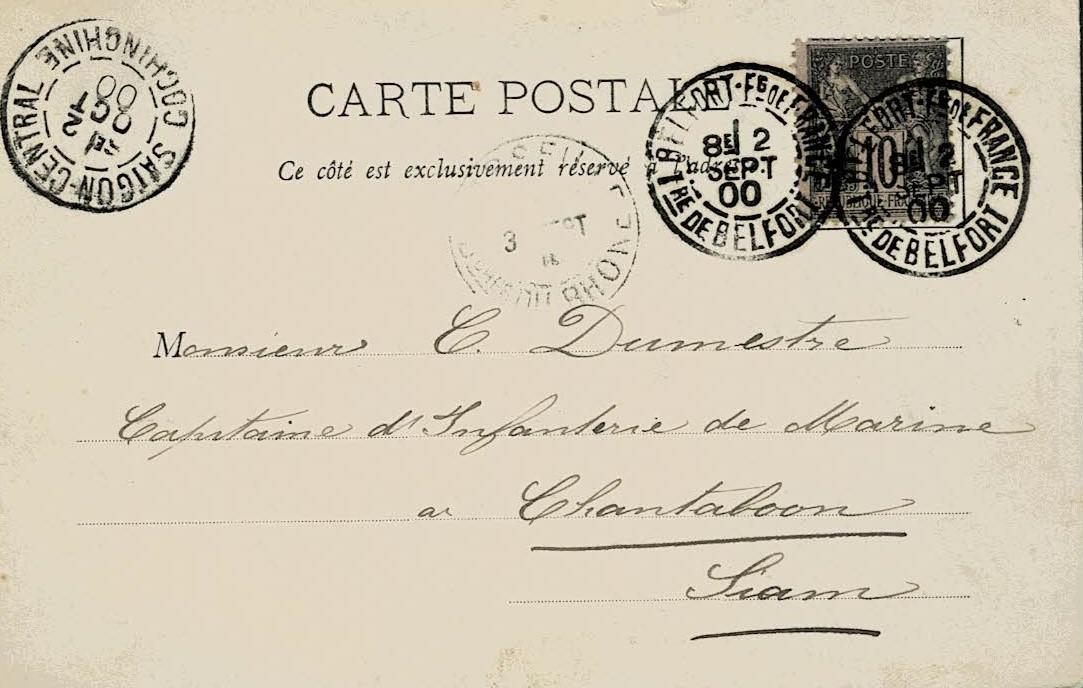 CARTE POSTALE
Ce côté est exclusivement réservé à l'adresse.
SAIGON-CENTRAL COCHINCHINE
2
OCT
00
BELFORT-FG DE FRANCE
8E 12
SEPT
00
TRE DE BELFORT
POSTES
10
REPUBLIQUE FRAN
BELFORT-FG DE FRANCE
8E 12
SEPT
00
TRE DE BELFORT
3
RHONE
Monsieur C. Dumestre
Capitaine d'Infanterie de Marine
à Chantaboon
Siam